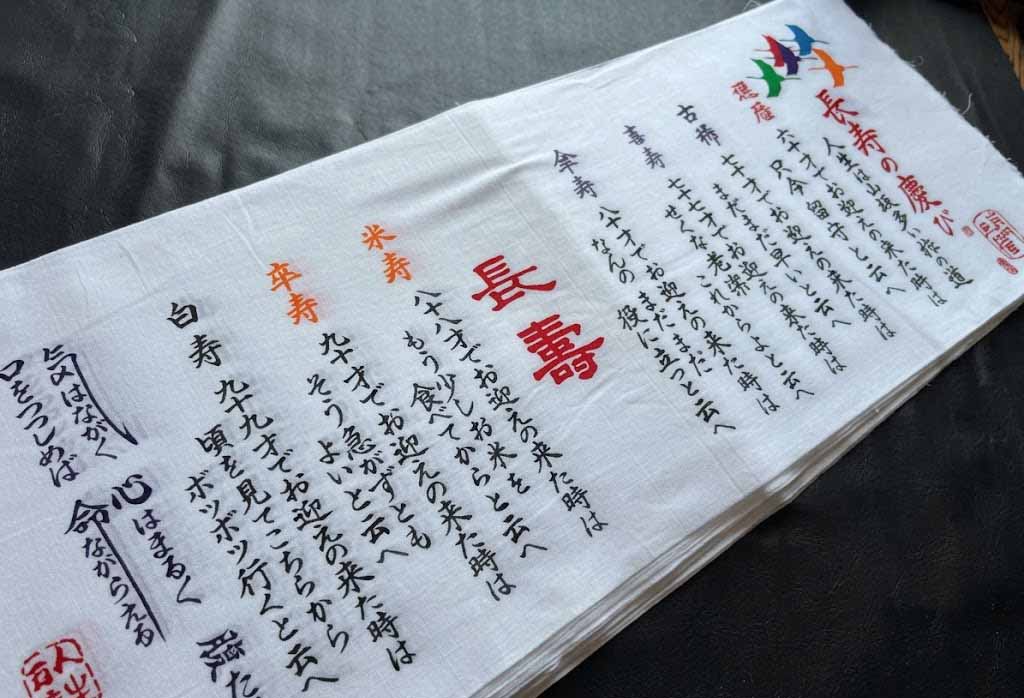 長寿の慶び
人生は山坂多い旅の道
還暦
六十才でお迎えの来た時は
只今留守と云へ
古稀
七十才でお迎えの来た時は
まだまだ早いと云へ
喜寿
七十七才でお迎えの来た時は
せくな老楽これからよと云へ
傘寿
八十才でお迎えの来た時は
なんのまだまだ役に立つと云へ
長壽
米寿
八十八才でお迎えの来た時は
もう少しお米を食べてからと云へ
卒寿
九十才でお迎えの来た時は
そう急がずともよいと云へ
白寿
九十九才でお迎えの来た時は
頃を見てこちらからボツボツ行くと云へ
気はながく
心はまるく
腹た
口をつつしめば
命ながらえる